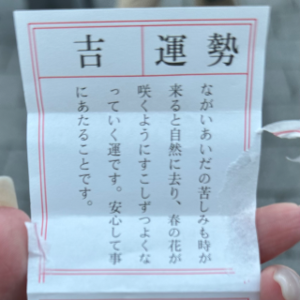 運勢
吉
ながいあいだの苦しみも時が
来ると自然に去り、春の花が
咲くようにすこしずつよくな
っていく運です。安心して事
にあたることです。